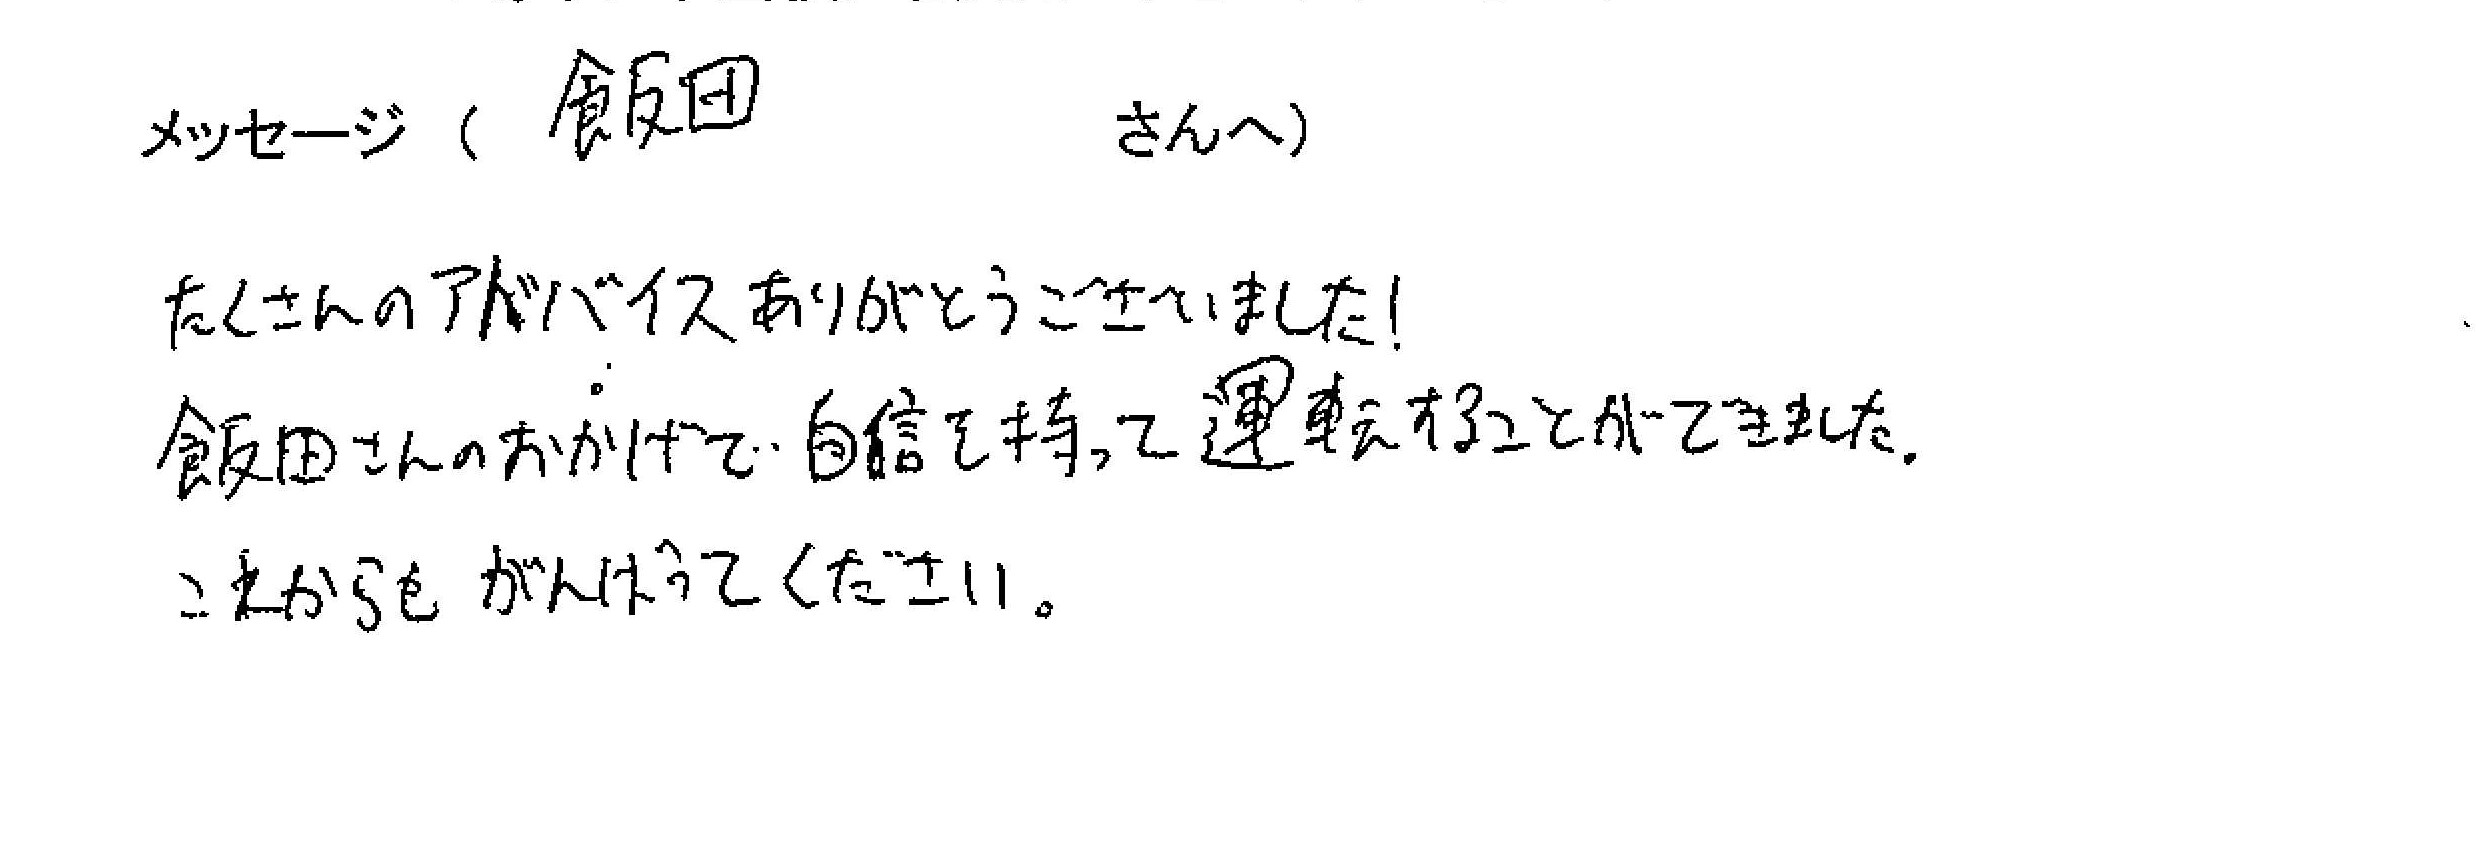 メッセージ（ 飯田 さんへ）
たくさんのアドバイスありがとうございました！
飯田さんのおかげで自信を持って運転することができました.
これからもがんばってください。